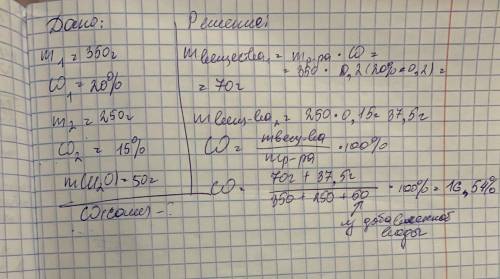 Дано:
m₁ = 350г
ω₁ = 20%
m₂ = 250г
ω₂ = 15%
m(H₂O) = 50г
ω(соли) - ?
Решение:
m вещества₁ = m р-ра · ω =
= 350 · 0,2 (20% = 0,2) =
= 70г
m вещ-ва₂ = 250 · 0,15 = 37,5г
ω = m вещ-ва / m р-ра · 100%
ω = 70г + 37,5г / 350 + 250 + 50 · 100% = 16,54%
добавленной
воды